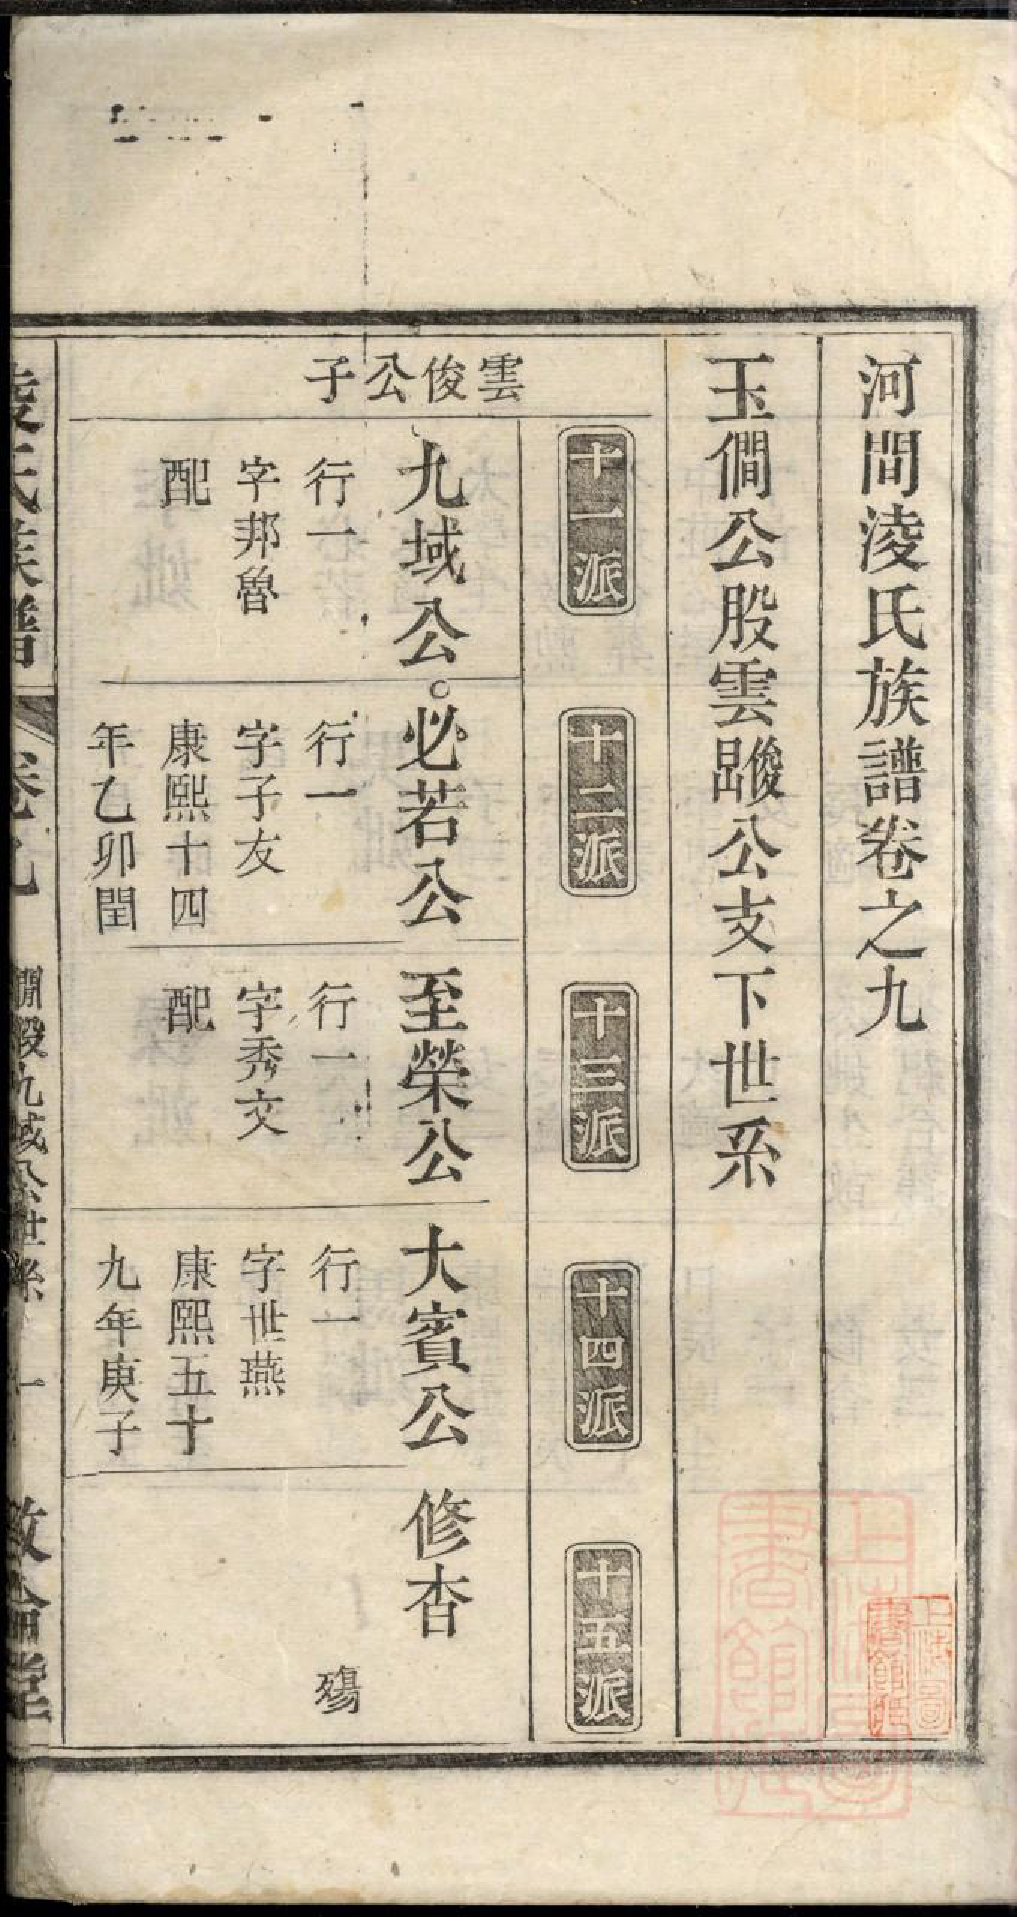 河間淩氏族譜卷之九
玉僩公股雲踆公支下世系
十一派
十二派
十三派
十四派
十五派
雲俊公子
九域公
行一
字邦魯
配
必若公
行一
字子友
康熙十四
年乙卯閏
至榮公
行一
字秀文
配
大賓公
行一
字世燕
康熙五十
九年庚子
修杏
殤
淩氏族譜
卷九
僩股九域公世系
一
敦倫堂